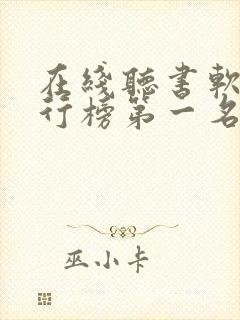 在綫聽書軟
行榜第一名
巫小卡